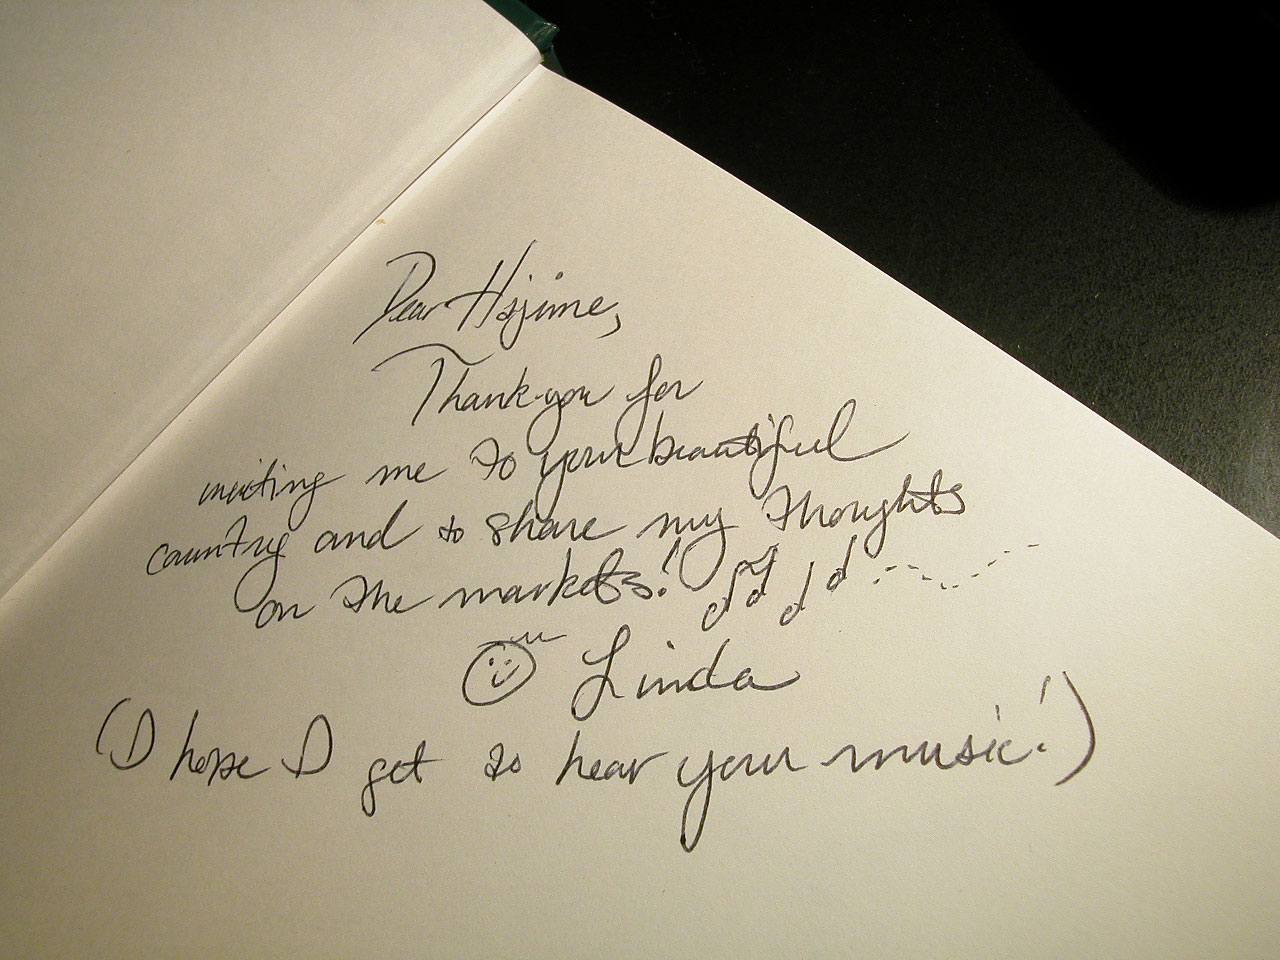 Dear Hajime,
Thank-you for
inviting me to your beautiful
country and to share my thoughts
on the markets!
Linda
(I hope I get to hear your music!)